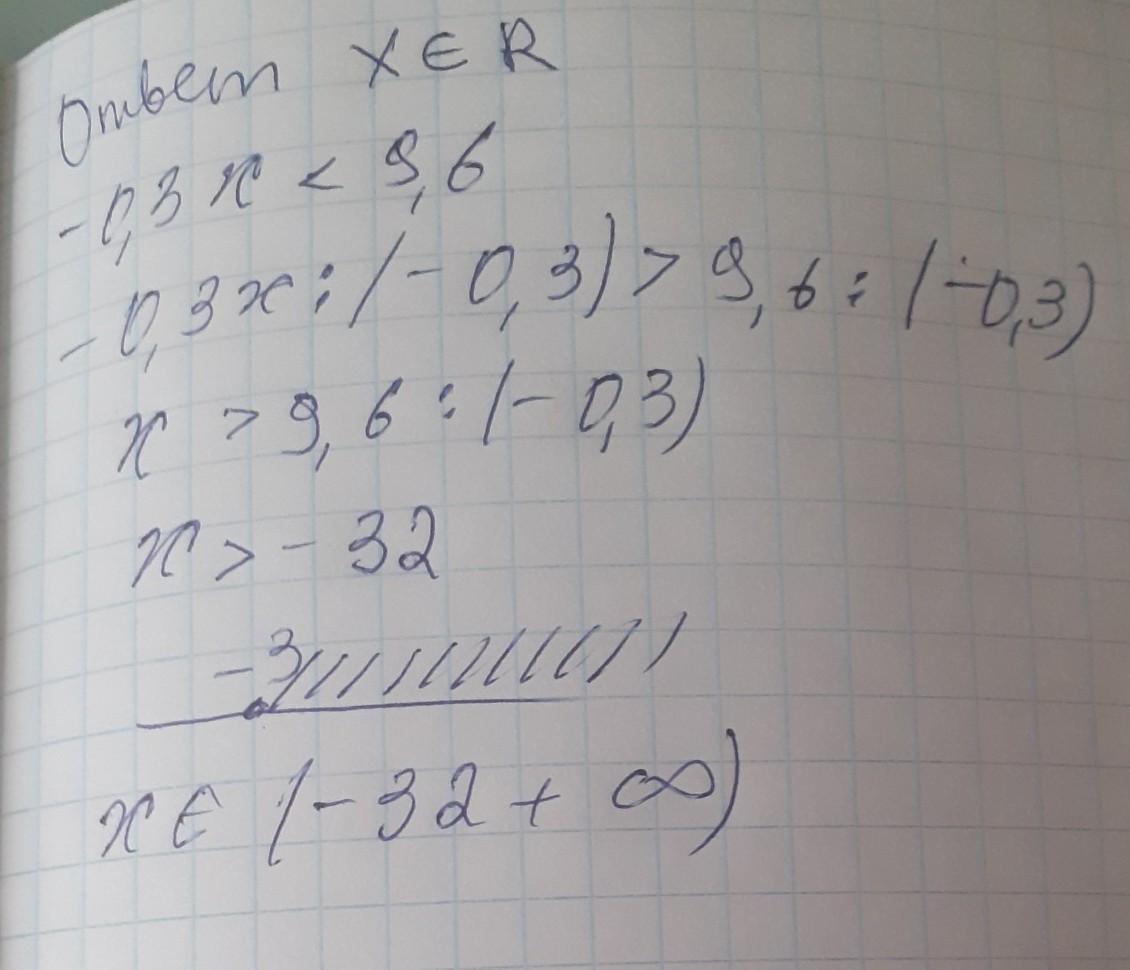 Ответ X ∈ R
-0,3x < 9,6
-0,3x : (-0,3) > 9,6 : (-0,3)
x > 9,6 : (-0,3)
x > -32
-3
x ∈ (-32 + ∞)